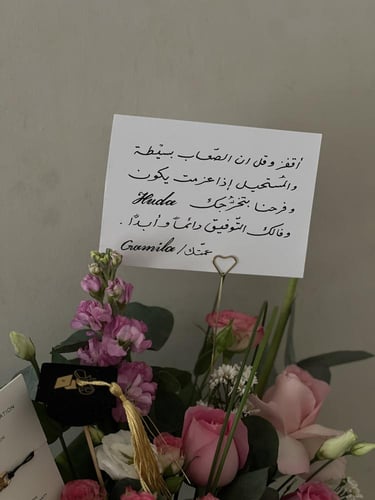 أقفز وقل ان الصّعاب بسيّطة
والمُستحيل إذا عزمت يكون
وفرحنا بتخرّجك Huda
وفالك التّوفيق دائماً وأبداً .
عمتّك / Gamila
ATION